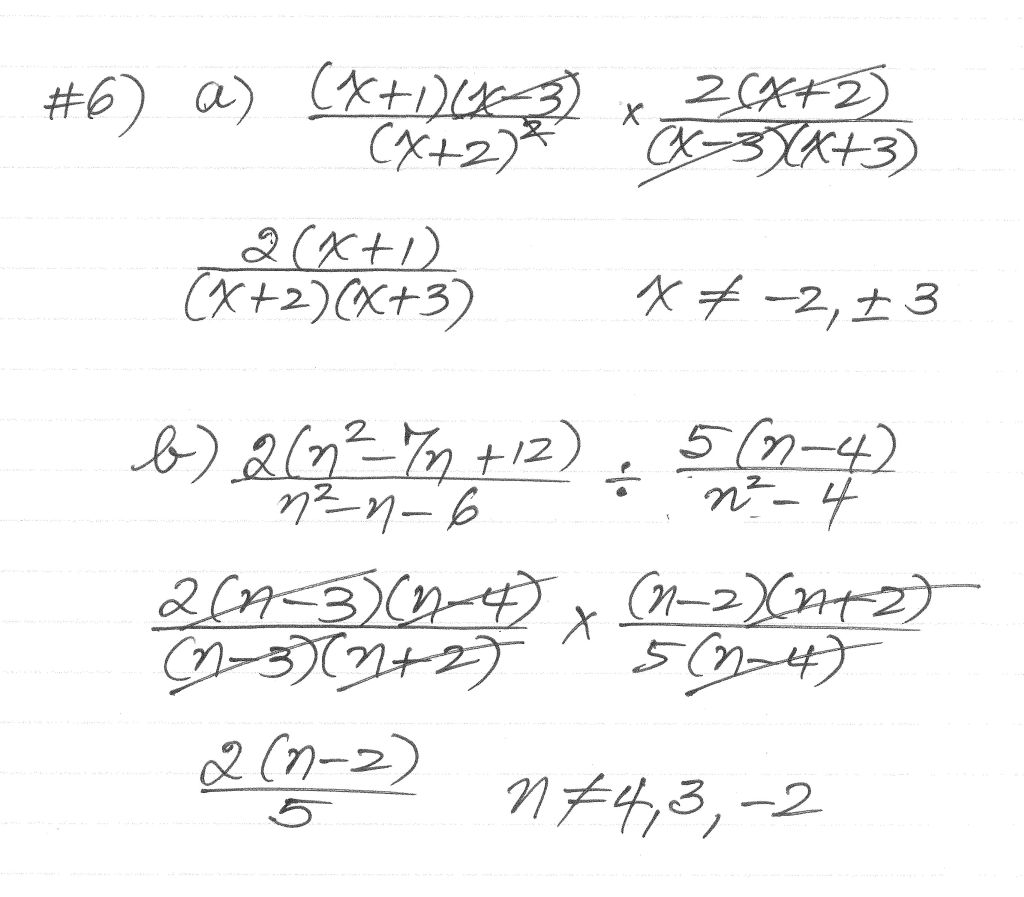 #6) a) (x+1)(x-3)/(x+2)² × 2(x+2)/(x-3)(x+3)
2(x+1)/(x+2)(x+3) x ≠ -2, ± 3
b) 2(n²-7n+12)/n²-n-6 ÷ 5(n-4)/n²-4
2(n-3)(n-4)/(n-3)(n+2) × (n-2)(n+2)/5(n-4)
2(n-2)/5 n≠4,3,-2